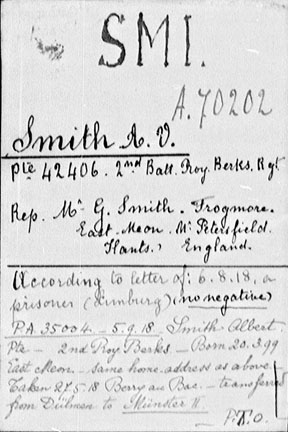 SMI.
A.70202
Smith A. V.
Pte 42406. 2nd Batt. Roy. Berks. Rgt
Rep. Mr G. Smith. Frogmore.
East Meon. Nr Petersfield.
Hants. England.
According to letter of: 6.8.18, a
prisoner (Limburg) (no negative)
PA 35004. – 5.9.18 Smith Albert.
Pte – 2nd Roy. Berks. – Born 20.3.99
East Meon – same home address as above
Taken 27.5.18 Berry au Bac. – transferred
from Dülmen to Münster II
P.T.O